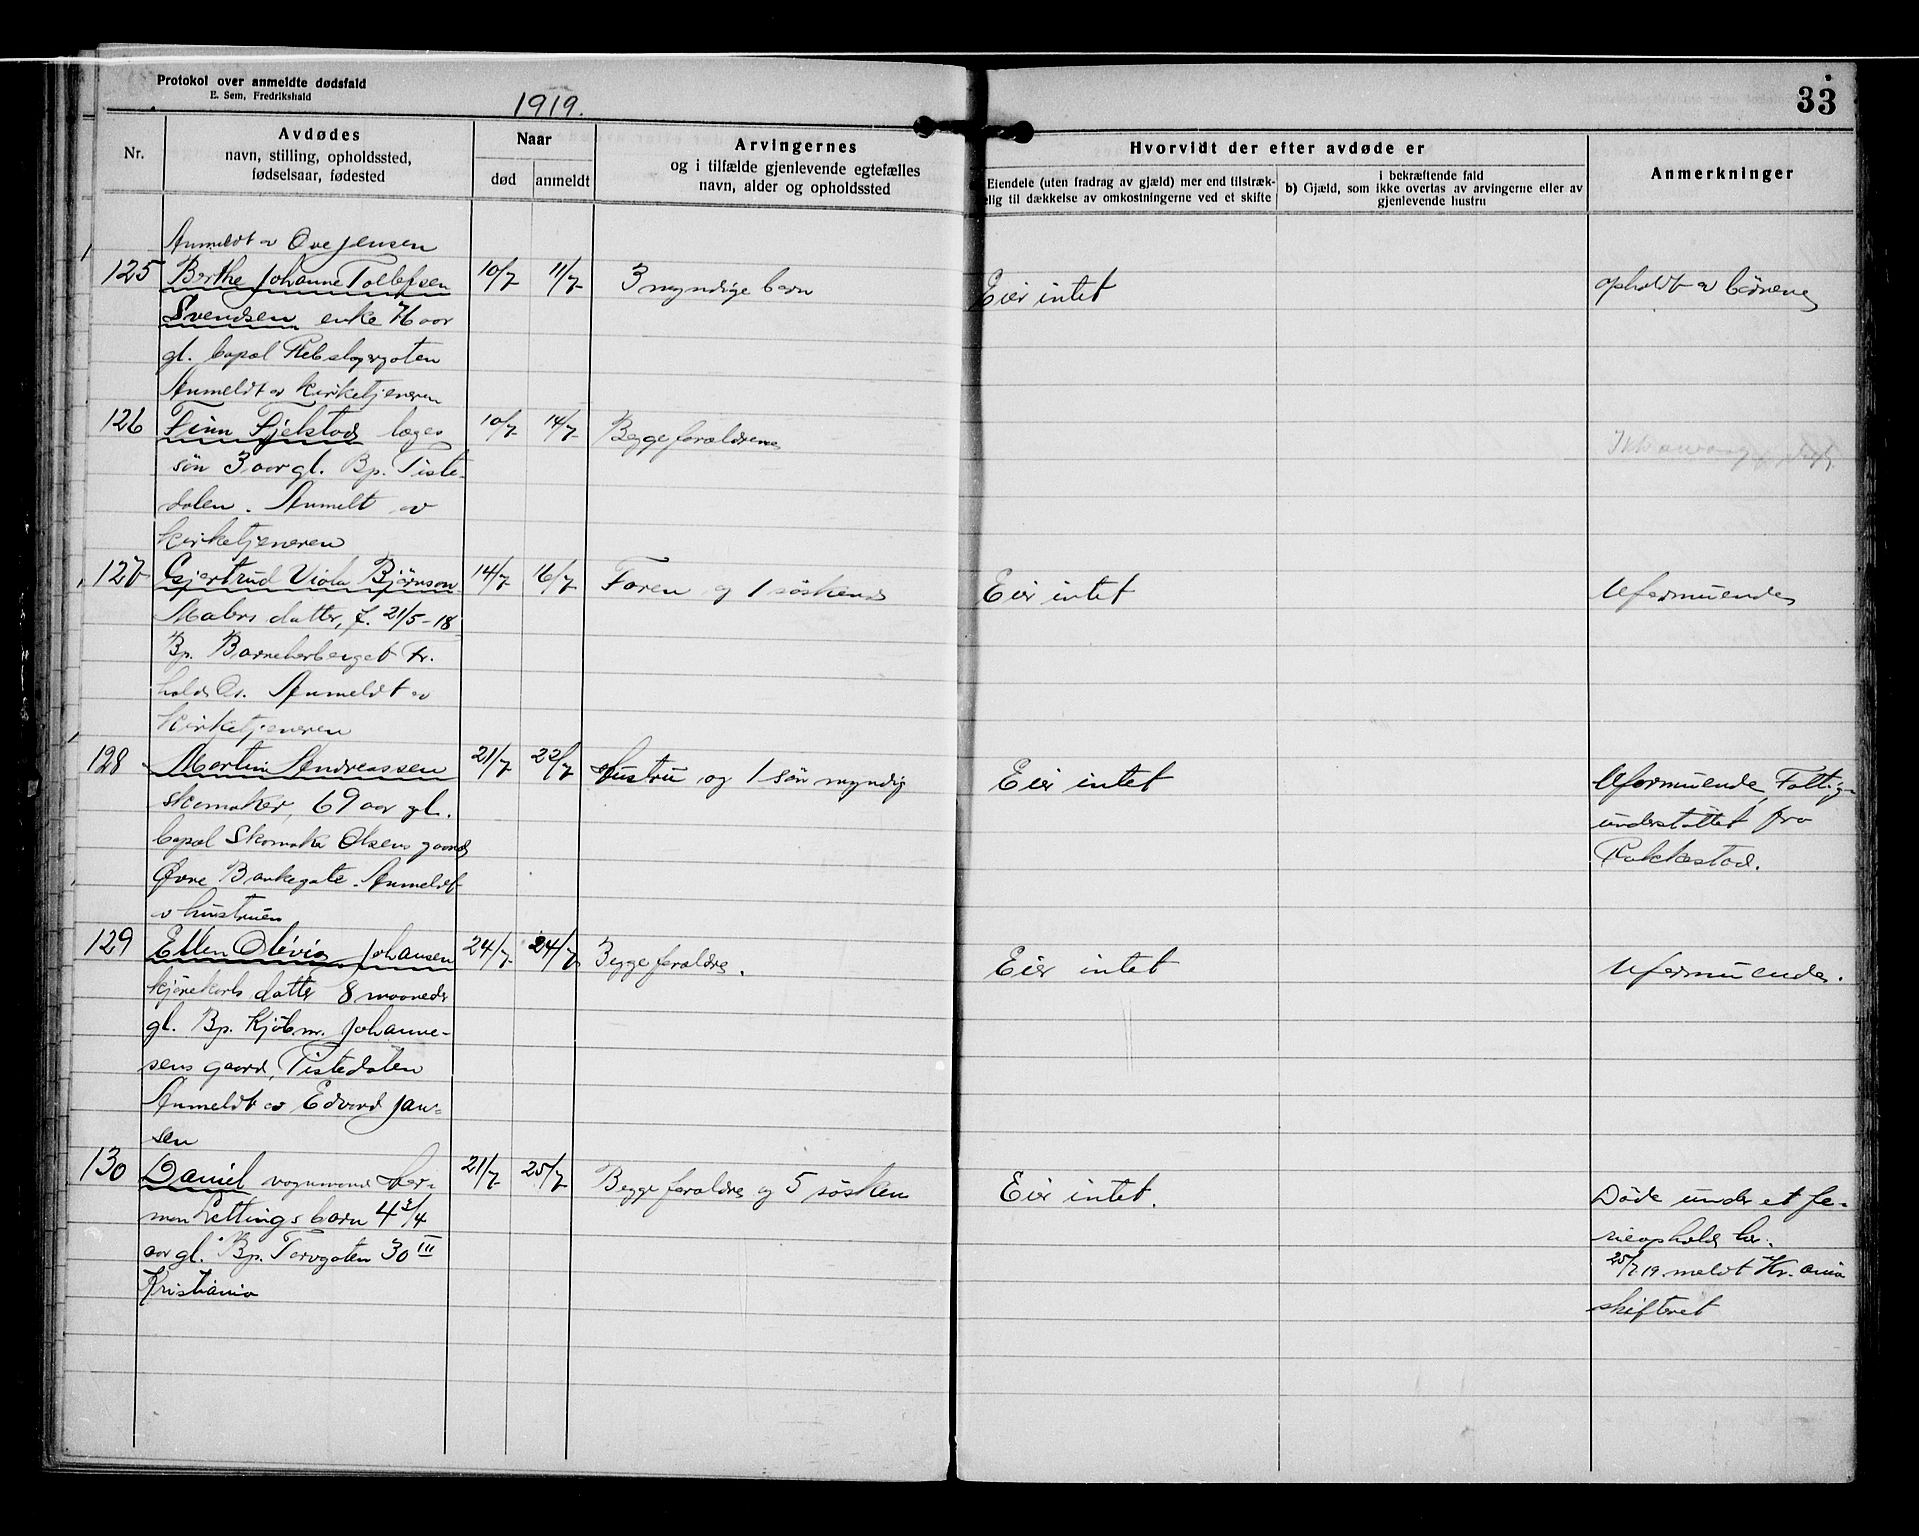 Protokol over anmeldte dødsfald
E. Sem, Fredrikshald
1919.
33
Nr.
Avdødes
navn, stilling, opholdssted,
fødselsaar, fødested
Naar
død
anmeldt
Arvingernes
og i tilfælde gjenlevende egtefælles
navn, alder og opholdssted
Hvorvidt der efter avdøde er
Eiendele (uten fradrag av gjæld) mer end tilstræk-
elig til dækkelse av omkostningerne ved et skifte
i bekræftende fald
b) Gjæld, som ikke overtas av arvingerne eller av
gjenlevende hustru
Anmerkninger
Anmeldt av Ove Jensen
125 Berthe Johanne Tollefsen 10/7 11/7 3 myndige barn Eier intet opholdt av børnene
Svendsen enke 76 aar
gl. bopæl Rebslagergaten
Anmeldt av kirketjeneren
126 Finn Fjelstad læges 10/7 14/7 Begge forældrene
søn 3 aar gl. Bp. Tiste-
dalen. Anmelt av
kirketjeneren
127 Gjertrud Viola Bjørnson 14/7 16/7 Faren og 1 søskende Eier intet Uformuende
Malers datter, f. 21/5-18
Bp. Barneherberget Fr.
hald. Anmeldt av
kirketjeneren
128 Martin Andreassen 21/7 22/7 Hustru og 1 søn myndig Eier intet Uformuende, Fattig-
skomaker, 69 aar gl. understøttet fra
bopæl Skomaker Olsens gaard Rakkestad.
Øvre Bankegate. Anmeldt
av hustruen
129 Ellen Olivia Johansen 24/7 24/7 Begge forældre. Eier intet Uformuende.
kjørekarls datter 8 maaneder
gl. Bp. Kjøbm. Johanne-
sens gaard, Tistedalen
Anmeldt av Edvard Jan-
sen
130 Daniel vognmand Her- 21/7 25/7 Begge forældre og 5 søsken Eier intet. Døde under et fe-
man Lettings barn 4 3/4 rieophold her.
aar gl. Bp. Torvgaten 30 III 25/7 19. meldt Kr.ania
Kristiania skifteret